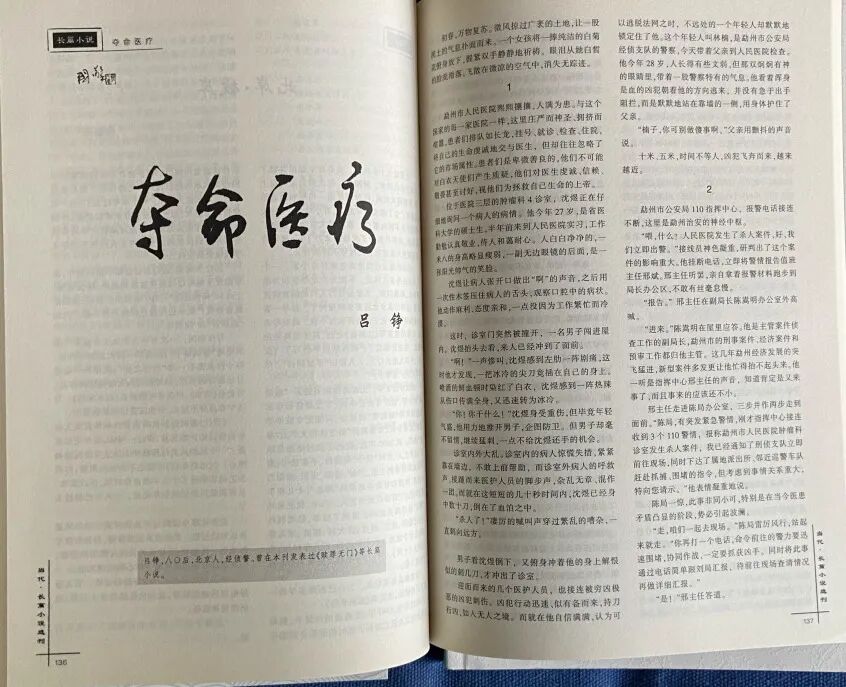 长篇小说
夺命医疗
夺命医疗
吕 铮
吕铮,八〇后,北京人,经侦警,曾在本刊发表过《赎罪无门》等长篇
小说。
当代·长篇小说选刊
136
初春,万物复苏。微风掠过广袤的土地,让一股
泥土的气息扑面而来。一个女孩将一捧纯洁的白菊
花俯身放下,默繁双手静静地祈祷。眼泪从她白皙
的脸庞滴落,飞散在微凉的空气中,消失无踪迹。
1
勐州市人民医院熙熙攘攘,人满为患。与这个
国家的每一家医院一样,这里庄严而神圣、拥挤而
喧嚣,患者们排队如长龙,挂号、就诊、检查、住院,
将自己的生命虔诚地交与医生,但却往往忽略了
它的市场属性。患者们是卑微善良的,他们不可能
对白衣天使们产生质疑,他们对医生虔诚、信赖、
顺从甚至讨好,视他们为拯救自己生命的上帝。
位于医院三层的肿瘤科4诊室,沈煜正在仔
细地询问一个病人的病情。他今年27岁,是省医
科大学的硕士生,半年前来到人民医院实习,工作
勤勉认真敬业,待人和蔼耐心。人白白净净的,一
米八的身高略显瘦弱,一副无边眼镜的后面,是一
张阳光帅气的笑脸。
沈煜让病人张开口做出“啊”的声音,之后用
一次性木签压住病人的舌头,观察口腔中的病状。
他动作麻利、态度亲和,一点没因为工作繁忙而冷
漠。
这时,诊室门突然被撞开,一名男子闯进屋
内。沈煜抬头去看,来人已经冲到了面前。
“啊!”一声惨叫,沈煜感到左肋一阵剧痛,这
时他才发现,一把冰冷的尖刀竟插在自己的身上。
喷涌的鲜血顿时染红了白衣,沈煜感到一阵热辣
从伤口传满全身,又迅速转为冰冷。
“你!你干什么!”沈煜身受重伤,但毕竟年轻
气盛,他用力地推开男子,企图防卫。但男子却毫
不留情,继续猛刺,一点不给沈煜还手的机会。
诊室内外大乱,诊室内的病人惊慌失措,紧紧
靠在墙边,不敢上前帮助,而诊室外病人的呼救
声、接踵而来医护人员的脚步声,杂乱无章、混作
一团,而就在这短短的几十秒时间内,沈煜已经身
中数十刀,倒在了血泊之中。
“杀人了!”凄厉的喊叫声穿过繁乱的嘈杂,一
直刺向远方。
男子看沈煜倒下,又俯身冲着他的身上解恨
似的刺几刀,才冲出了诊室。
迎面而来的几个医护人员,也接连被穷凶极
恶的凶犯刺伤。凶犯行动迅速,似有备而来,持刀
行凶,如入无人之境。而就在他自信满满、认为可
以逃脱法网之时,不远处的一个年轻人却默默地
锁定了他。这个年轻人叫林楠,是勐州市公安局
经侦支队的警察,今天带着父亲到人民医院检查。
他今年28岁,人长得有些文弱,但那双炯炯有神
的眼睛里,带着一股警察特有的气息。他看着浑身
是血的凶犯朝着他的方向逃来,并没有急于出手
阻拦,而是默默地站在靠墙的一侧,用身体护住了
父亲。
“楠子,你可别做傻事啊。”父亲用颤抖的声音
说。
十米、五米,时间不等人,凶犯飞奔而来,越来
越近。
2
勐州市公安局110指挥中心,报警电话接连
不断,这里是勐州治安的神经中枢。
“喂,什么!人民医院发生了杀人案件,好,我
们立即出警。”接线员神色凝重,研判出了这个案
件的影响重大。他挂断电话,立即将警情报告值班
主任邢斌,邢主任听罢,亲自拿着报警材料跑步到
局长办公区,不敢有丝毫怠慢。
“报告。”邢主任在副局长陈嵩明办公室外高
喊。
“进来。”陈嵩明在屋里应答,他是主管案件侦
查工作的副局长,勐州市的刑事案件、经济案件和
预审工作都归他主管。这几年勐州经济发展的突
飞猛进,新型案件多发更让他忙得抬不起头来。他
一听是指挥中心邢主任的声音,知道肯定是又来
事了,而且事来的应该还不小。
邢主任走进陈局办公室,三步并作两步走到
面前。“陈局,有突发紧急警情,刚才指挥中心接连
收到3个110警情,报称勐州市人民医院肿瘤科
诊室发生杀人案件,我已经通知了刑侦支队立即
前往现场,同时下达了属地派出所、邻近巡警车队
赶赴抓捕、围堵的指令,但考虑到事情关系重大,
特向您请示。”他表情凝重地说。
陈局一惊,此事非同小可,特别是在当今医患
矛盾凸显的阶段,势必引起波澜。
“走,咱们一起去现场。”陈局雷厉风行,站起
来就走。“你再打一个电话,命令前往的警力要迅
速围堵,协同作战,一定要抓获凶手。同时将此事
通过电话简单跟刘局汇报,待前往现场查清情况
再做详细汇报。”
“是!”邢主任答道。
当代·长篇小说选刊
137